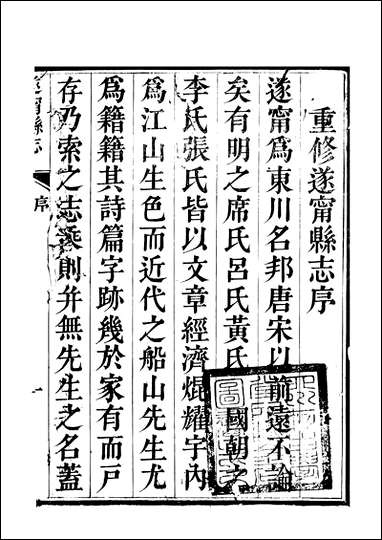 重修遂甯縣志序
遂甯爲東川名邦唐宋以前遠不論
矣有明之席氏呂氏黃氏國朝之
李氏張氏皆以文章經濟焜耀宇內
爲江山生色而近代之船山先生尤
爲籍籍其詩篇字跡幾於家有而戶
存乃索之志乘則并無先生之名蓋
遂甯縣志
序
一